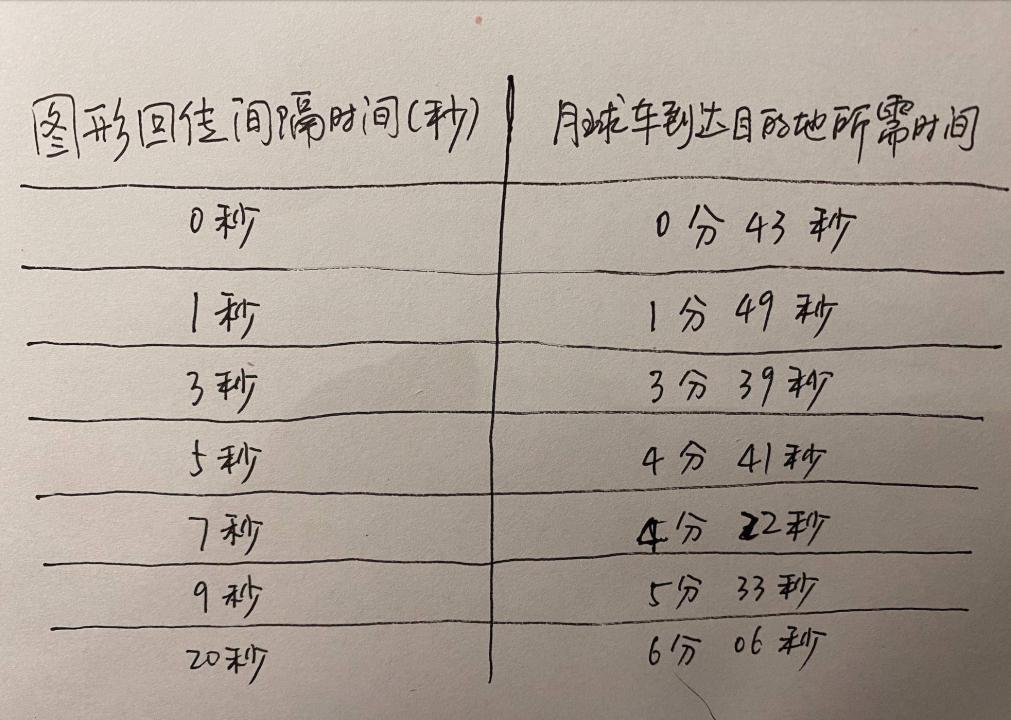 图形回传间隔时间(秒) 月球车到达目的地所需时间
0秒 0分 43秒
1秒 1分 49秒
3秒 3分 39秒
5秒 4分 41秒
7秒 4分 22秒
9秒 5分 33秒
20秒 6分 06秒